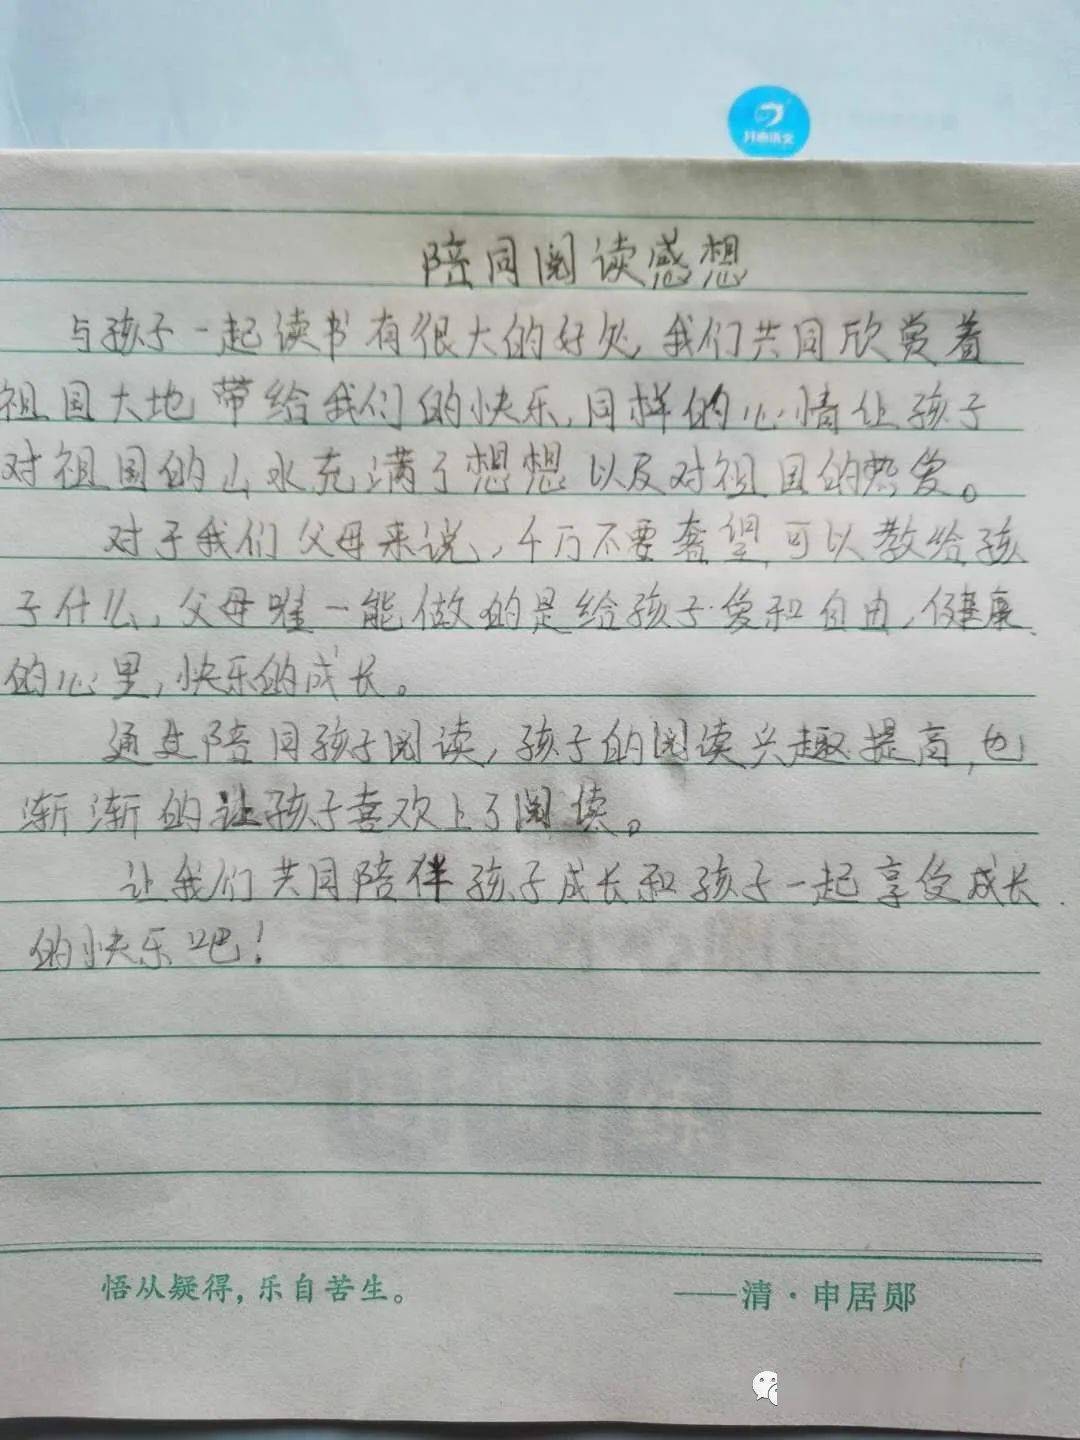 开心语文
陪同阅读感想
与孩子一起读书有很大的好处,我们共同欣赏着
祖国大地带给我们的快乐,同样的心情让孩子
对祖国的山水充满了想想以及对祖国的热爱。
对于我们父母来说,千万不要奢望,可以教给孩
子什么,父母唯一能做的是给孩子爱和自由,健康
的心里,快乐的成长。
通过陪同孩子阅读,孩子的阅读兴趣提高,也
渐渐的让孩子喜欢上了阅读。
让我们共同陪伴孩子成长和孩子一起享受成长
的快乐吧!
悟从疑得,乐自苦生。
——清·申居郧